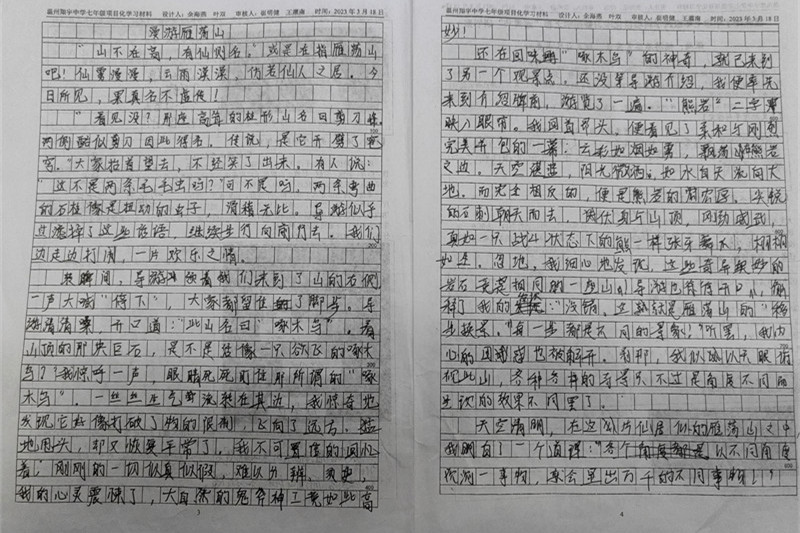 温州翔宇中学七年级项目化学习材料 设计人：余海燕 叶双 审核人：崔明健 王露南 时间：2023年3月18日
漫游雁荡山
"山不在高，有仙则名。"或是在指雁荡山
吧！仙雾漫漫，云雨漠漠，仿若仙人之居。今
日所见，果真名不虚传！
"看见没？那座高耸的柱形山名曰剪刀峰，
两侧酷似剪刀因此得名。传说，是它开劈了
"大家抬首望去，不经笑了出来。有人说：
"这不是两条毛毛虫吗？"可不是吗，两条弯曲
的石柱像是扭动的虫子，滑稽无比。导游似乎
这些话语，继续步行向前行去。我们
边走边打闹，一片欢乐之情。
瞬间，导游领着我们来到了山的右侧
一声大喊"停下"，大家都留住了脚步。导
游清清嗓，开口道："此山名曰'啄木鸟'。看
山顶的那块巨石，是不是恰像一只欲飞的啄木
鸟？"我惊呼一声，眼睛死死盯住那所谓的"啄
木鸟"。一丝丝生气流萦在其边，我惊奇地
发现它好像打破了物的限制，飞向了远方。
地回头，却又恢复平常了。我不可置信的回忆
着，刚刚的一切似真似假，难以分辨。
我的心灵震惊了，大自然的鬼斧神工竟如此高
3
温州翔宇中学七年级项目化学习材料 设计人：余海燕 叶双 审核人：崔明健 王露南 时间：2023年3月18日
妙！
还在回味着"啄木鸟"的神奇，就已来到
了另一个观景点，还没等导游介绍，我便率先
来到介绍牌前，游览了一遍。"熊岩"二字
映入眼帘。我回首举头，便看见了柔和与刚烈
完美并包的一幕：云彩如烟如雾，飘荡
之边。天空湛蓝，阳光微洒，如水自天流向大
地。而完全相反的，便是熊岩的
的石刺朝天而去，俯伏身与山顶，风劲威武，
真如一只战斗状态下的熊一样张牙舞爪，栩栩
如生。忽地，我细心地发现，这些奇异敏妙的
岩石竟是相同的一些山。导游也笑着开口，解
释了我的疑惑："没错。这就是雁荡山的'移
步换景'。有一步都是不同的景象！"听罢，我内
心的困惑
似此山，各种各样的不过是角度不同而
生坎的效果不同罢了。
天空清明，在这片仙居似的雁荡山之中，
我明白了一个道理："各个以不同角度
一事物，亦会呈出万千的不同事物！"
4